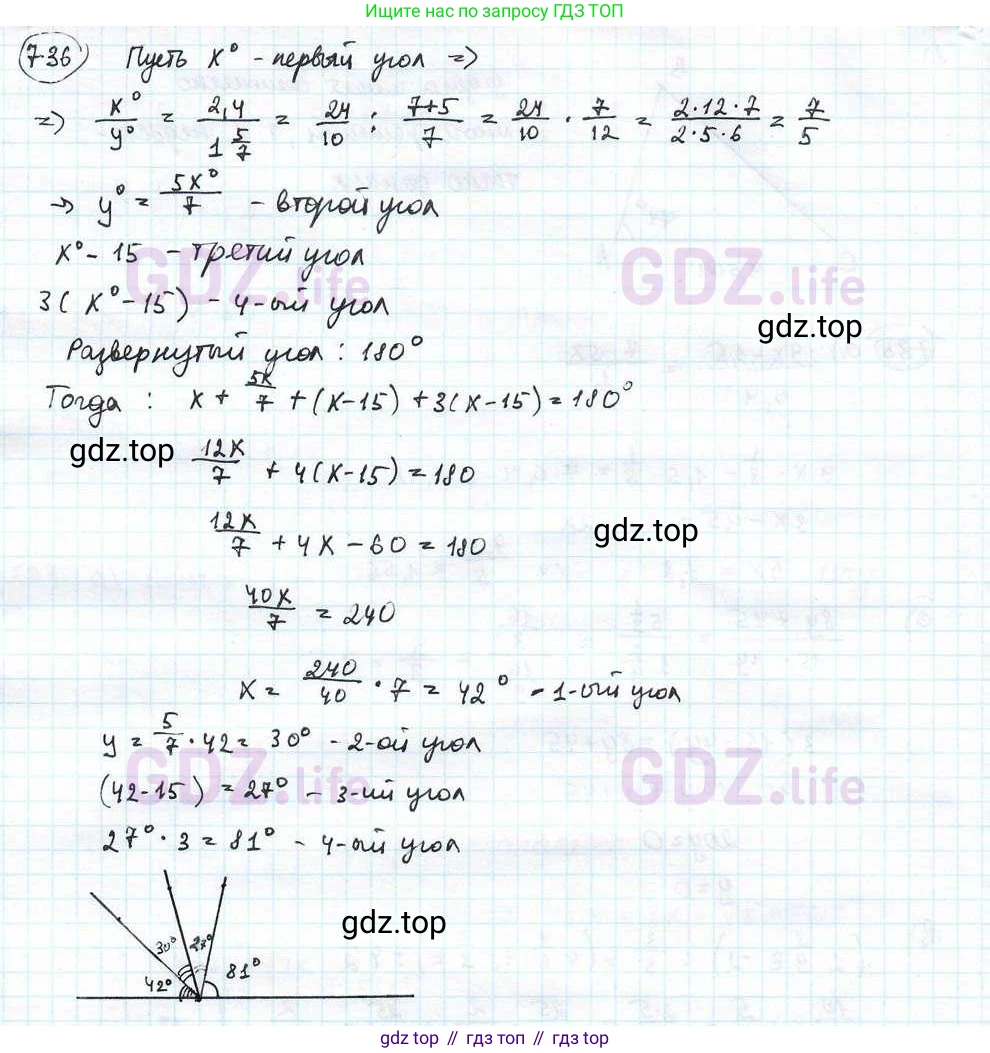 Ищите нас по запросу ГДЗ ТОП
736 Пусть x° - первый угол =>
=> x°/y° = 2,4/1 5/7 = 24/10 : 7+5/7 = 24/10 · 7/12 = 2·12·7/2·5·6 = 7/5
→ y° = 5x°/7 - второй угол
x° - 15 - третий угол
GDZ.life GDZ.life
3(x° - 15) - 4-ый угол
gdz.top
Развернутый угол: 180°
Тогда : x + 5x/7 + (x-15) + 3(x-15) = 180°
gdz.top
12x/7 + 4(x-15) = 180
gdz.top
12x/7 + 4x - 60 = 180
40x/7 = 240
x = 240/40 · 7 = 42° - 1-ый угол
y = 5/7 · 42 = 30° - 2-ой угол
GDZ.life GDZ.life
(42-15) = 27° - 3-ий угол
27° · 3 = 81° - 4-ый угол
gdz.top
30° 27°
42° 81°
gdz.top // гдз топ // gdz.top